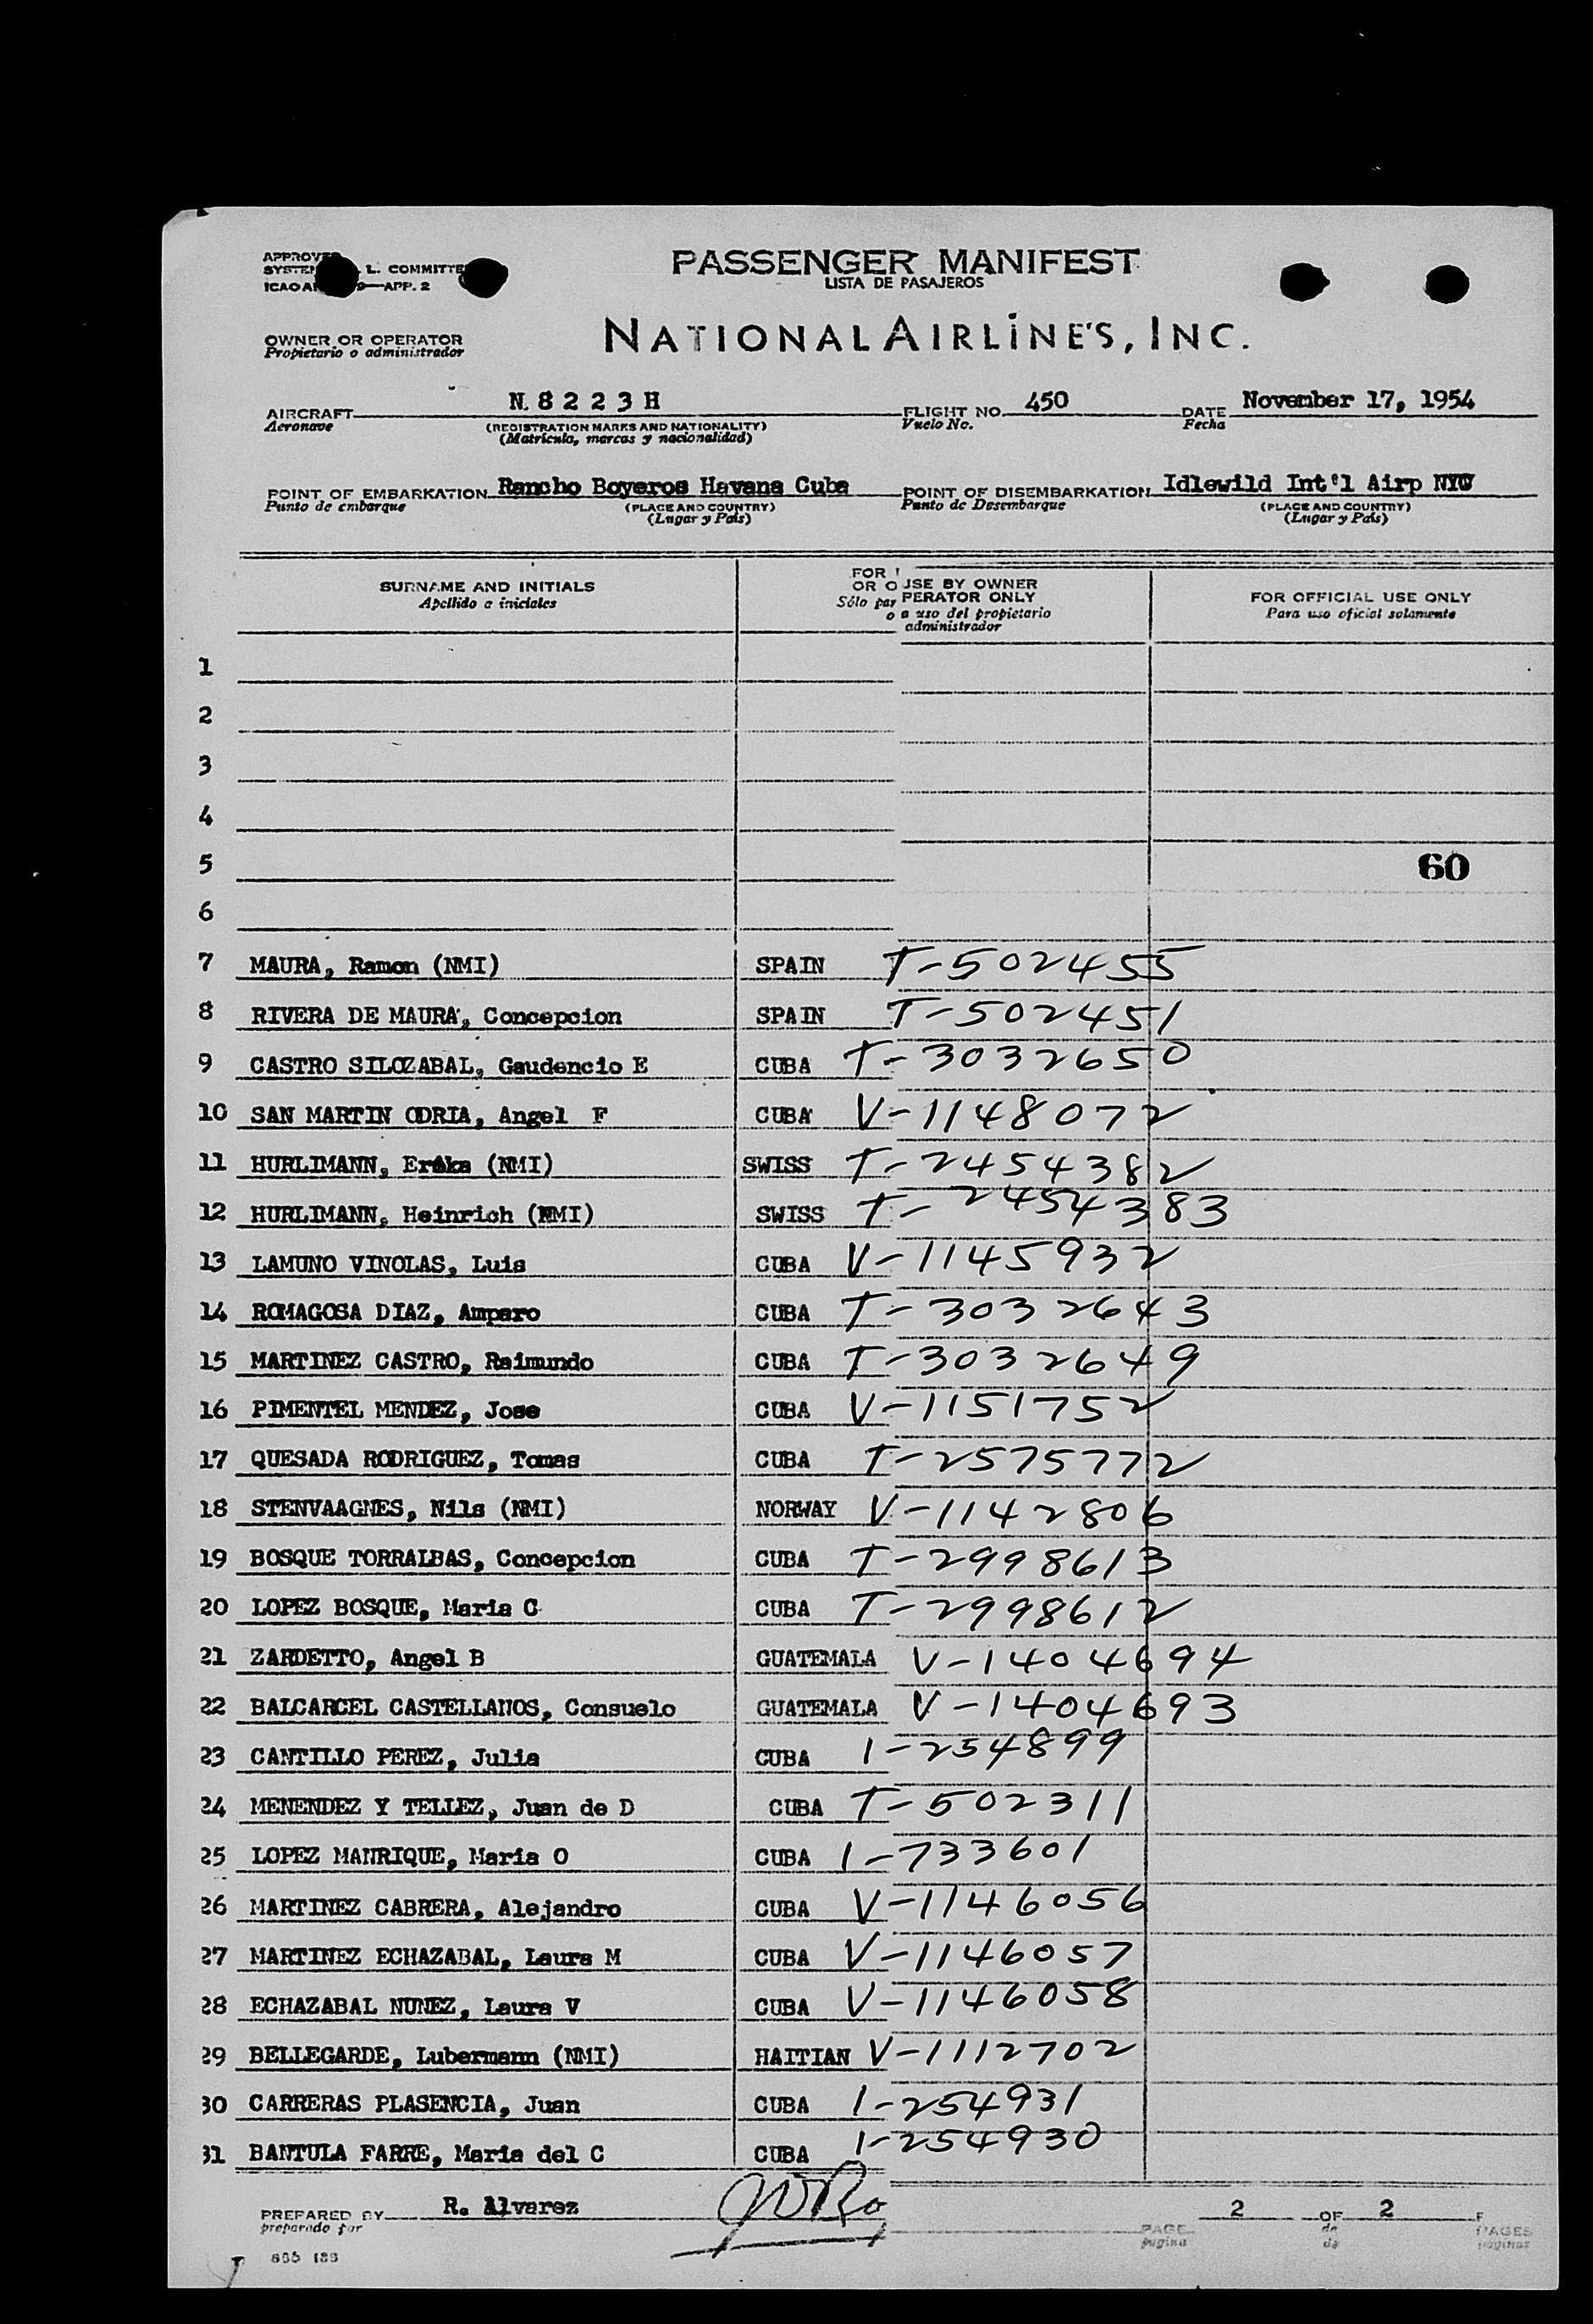 PASSENGER MANIFEST
LISTA DE PASAJEROS
L. COMMITTE
ICAO
APP. 2
OWNER OR OPERATOR
Propietario o administrador
NATIONAL AIRLINES, INC.
AIRCRAFT N. 8 2 2 3 H FLIGHT NO. 450 DATE November 17, 1954
Aeronave (REGISTRATION MARKS AND NATIONALITY) Vuelo No. Fecha
(Matrícula, marcas y nacionalidad)
POINT OF EMBARKATION Rancho Boyeros Havana Cuba POINT OF DISEMBARKATION Idlewild Int'l Airp NYC
Punto de embarque (PLACE AND COUNTRY) Punto de Desembarque (PLACE AND COUNTRY)
(Lugar y País) (Lugar y País)
SURNAME AND INITIALS
Apellido e iniciales
FOR
OR O USE BY OWNER
Sólo par PERATOR ONLY
o a uso del propietario
administrador
FOR OFFICIAL USE ONLY
Para uso oficial solamente
1
2
3
4
5 60
6
7 MAURA, Ramon (NMI) SPAIN T-502455
8 RIVERA DE MAURA, Concepcion SPAIN T-502451
9 CASTRO SILOZABAL, Gaudencio E CUBA T-3032650
10 SAN MARTIN ODRIA, Angel F CUBA V-1148072
11 HURLIMANN, Erika (NMI) SWISS T-2454382
12 HURLIMANN, Heinrich (NMI) SWISS T-2454383
13 LAMUNO VINOLAS, Luis CUBA V-1145932
14 ROMAGOSA DIAZ, Amparo CUBA T-3032643
15 MARTINEZ CASTRO, Raimundo CUBA T-3032649
16 PIMENTEL MENDEZ, Jose CUBA V-1151752
17 QUESADA RODRIGUEZ, Tomas CUBA T-2575772
18 STENVAAGNES, Nils (NMI) NORWAY V-1142806
19 BOSQUE TORRALBAS, Concepcion CUBA T-2998613
20 LOPEZ BOSQUE, Maria C CUBA T-2998612
21 ZARDETTO, Angel B GUATEMALA V-1404694
22 BALCARCEL CASTELLANOS, Consuelo GUATEMALA V-1404693
23 CANTILLO PEREZ, Julia CUBA 1-254899
24 MENENDEZ Y TELLEZ, Juan de D CUBA T-502311
25 LOPEZ MANRIQUE, Maria O CUBA 1-733601
26 MARTINEZ CABRERA, Alejandro CUBA V-1146056
27 MARTINEZ ECHAZABAL, Laura M CUBA V-1146057
28 ECHAZABAL NUNEZ, Laura V CUBA V-1146058
29 BELLEGARDE, Lubermann (NMI) HAITIAN V-1112702
30 CARRERAS PLASENCIA, Juan CUBA 1-254931
31 BANTULA FARRE, Maria del C CUBA 1-254930
PREPARED BY R. Alvarez PAGE 2 OF 2 PAGES
preparado por pagina de paginas